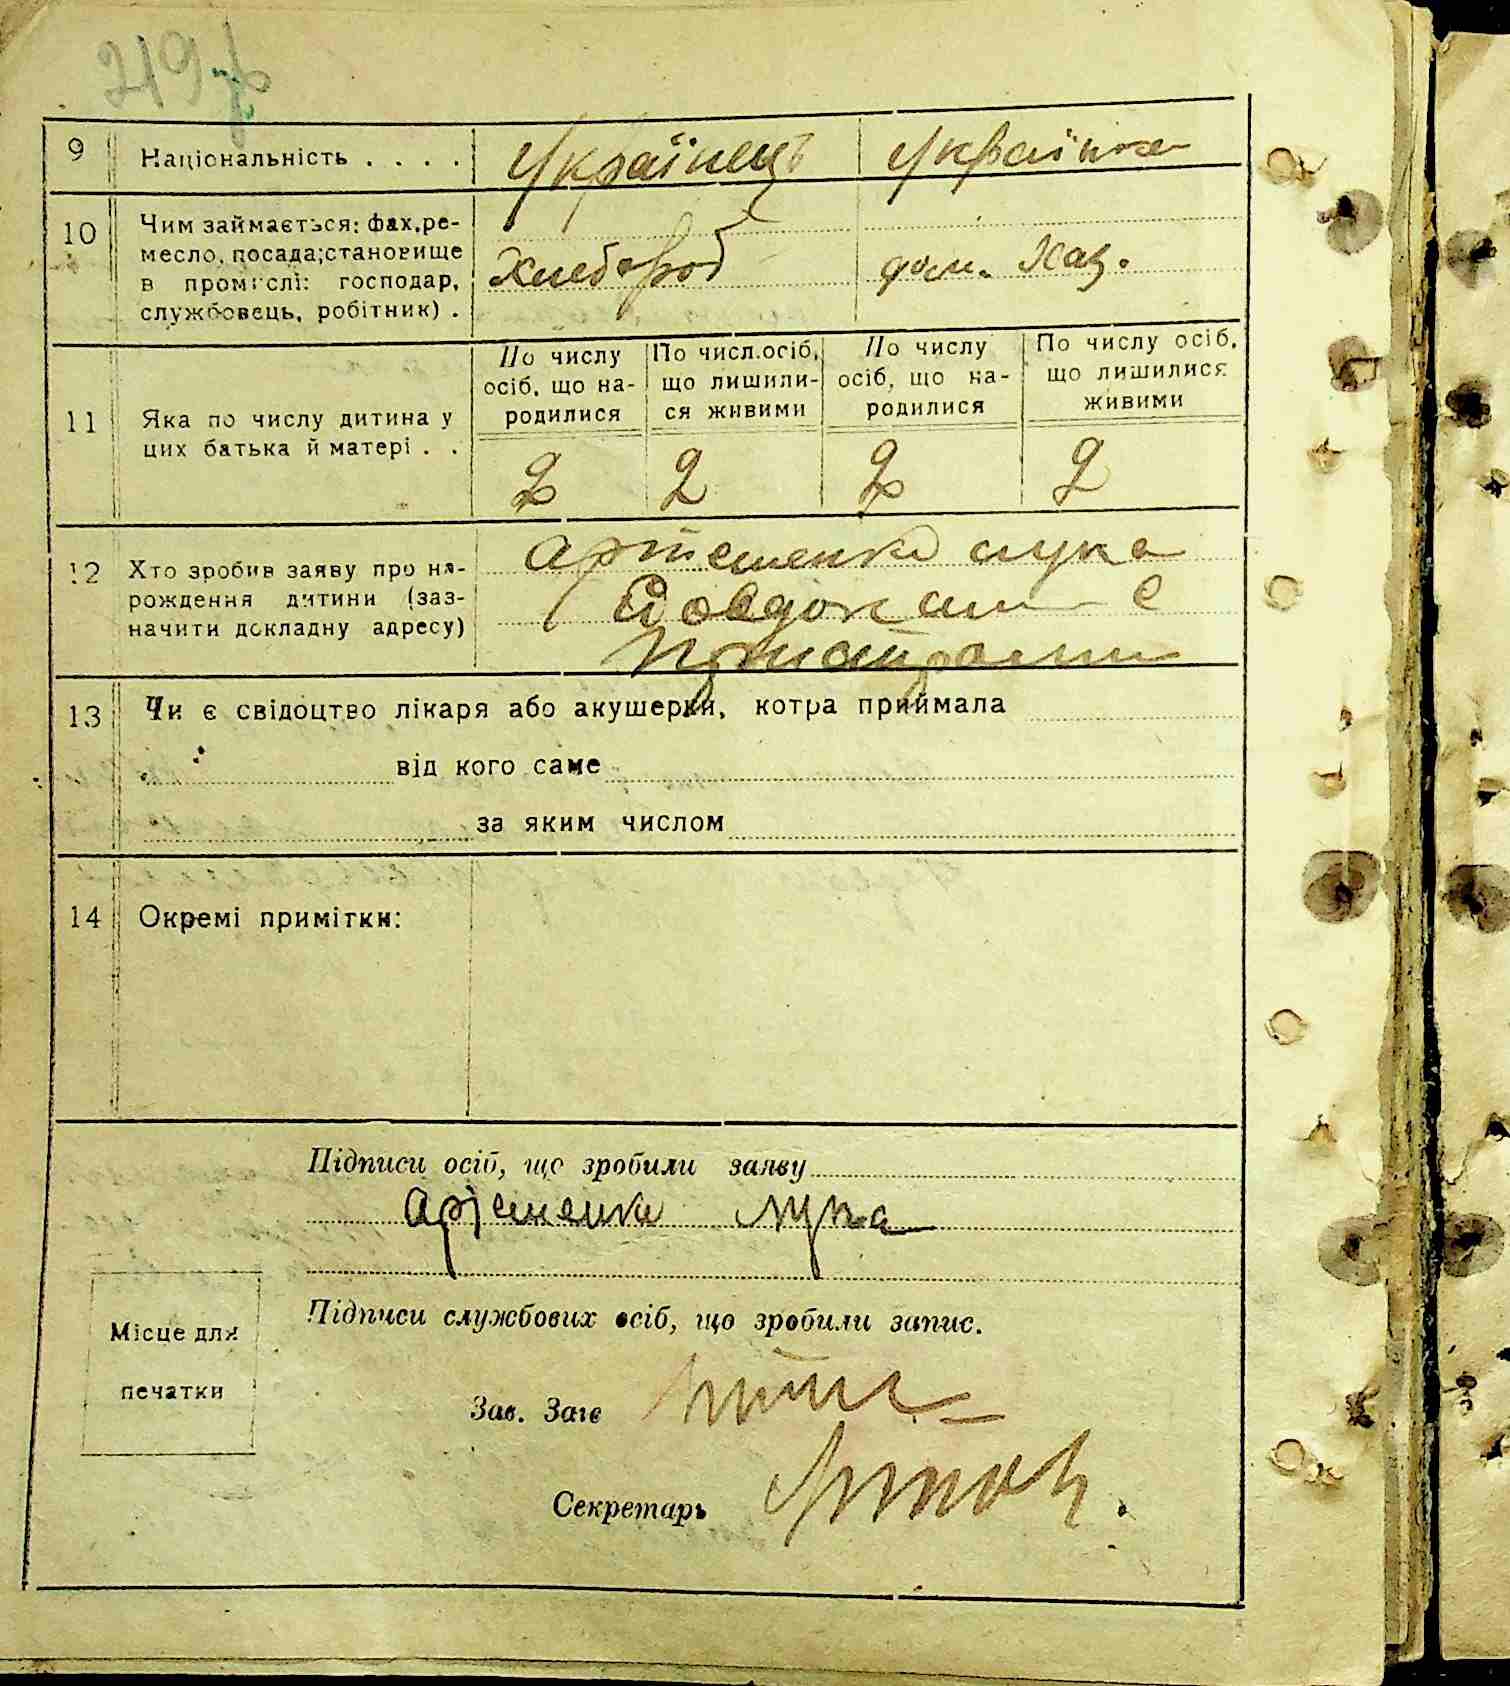 219
9 Національність . . . . Українець Українка
10 Чим займається: фах, ре-
месло, посада; становище
в промислі: господар,
службовець, робітник) .
Хлебороб дом. Хаз.
11 Яка по числу дитина у
цих батька й матері . .
По числу
осіб, що на-
родилися
По числ. осіб,
що лишили-
ся живими
По числу
осіб, що на-
родилися
По числу осіб,
що лишилися
живими
2 2 2 2
12 Хто зробив заяву про на-
рождення дитини (заз-
начити докладну адресу)
Артеменко Лука
Явдоким е
13 Чи є свідоцтво лікаря або акушерки, котра приймала
від кого саме
за яким числом
14 Окремі примітки:
Підписи осіб, що зробили заяву
Артеменко Лука
Місце для
печатки
Підписи службових осіб, що зробили запис.
Зав. Загс
Секретарь